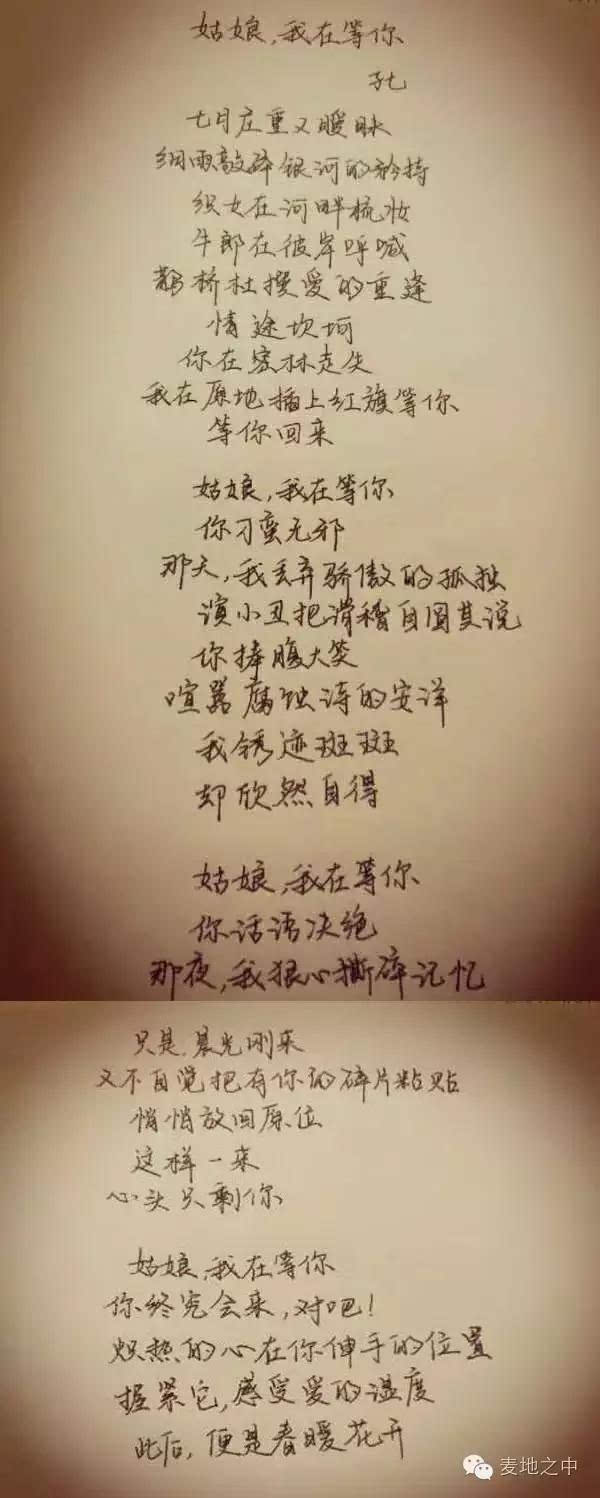 姑娘,我在等你
孔七
七月庄重又暧昧
细雨敲碎银河的矜持
织女在河畔梳妆
牛郎在彼岸呼喊
鹊桥杜撰爱的重逢
情途坎坷
你在密林走失
我在原地插上红旗等你
等你回来
姑娘,我在等你
你刁蛮无邪
那天,我丢弃骄傲的孤独
演小丑把滑稽自圆其说
你捧腹大笑
喧嚣腐蚀诗的安详
我锈迹斑斑
却欣然自得
姑娘,我在等你
你话语决绝
那夜,我狠心撕碎记忆
只是,晨光刚来
又不自觉把有你的碎片粘贴
悄悄放回原位
这样一来
心头只剩你
姑娘,我在等你
你终究会来,对吧!
炽热的心在你伸手的位置
握紧它,感受爱的温度
此后,便是春暖花开
麦地之中